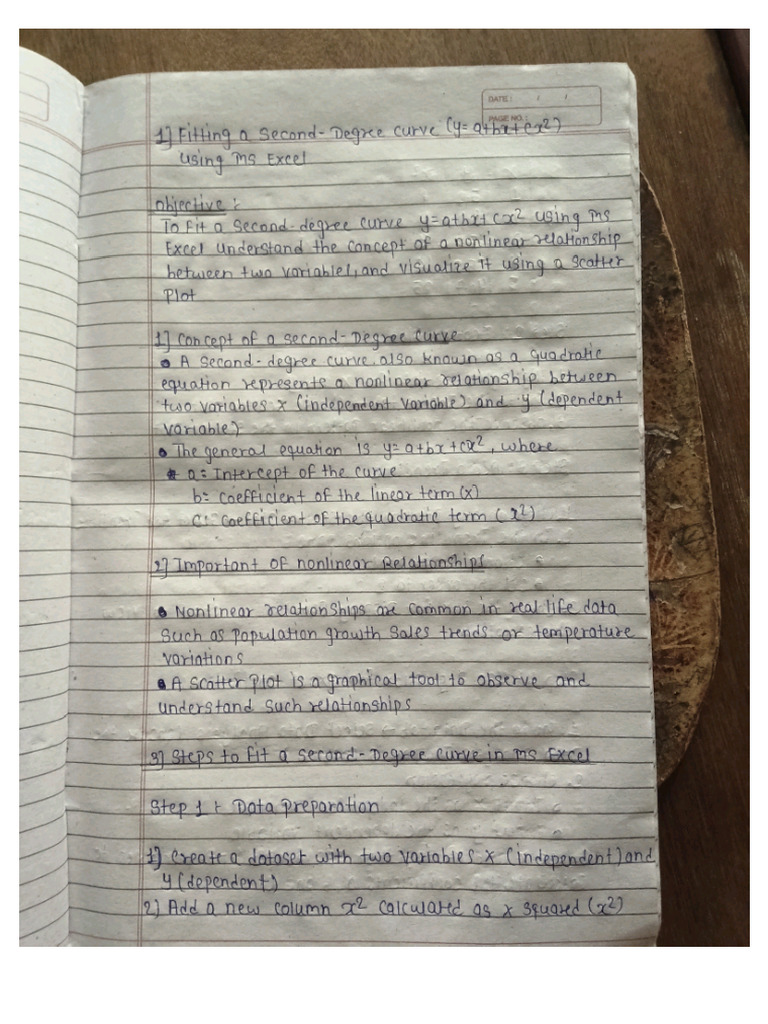 DATE: / /
PAGE NO.:
1] Fitting a Second-Degree Curve (y=a+bx+cx²)
using MS Excel
Objective :
To Fit a Second-degree curve y=a+bx+cx² using MS
Excel understand the concept of a nonlinear relationship
between two variables, and visualize it using a scatter
Plot
1] Concept of a Second-Degree Curve
• A Second-degree curve also known as a quadratic
equation represents a nonlinear relationship between
two variables x (independent variable) and y (dependent
variable)
• The general equation is y=a+bx+cx², where
• a = Intercept of the curve
b = Coefficient of the linear term (x)
c = Coefficient of the quadratic term (x²)
2] Important of nonlinear Relationships
• Nonlinear relationships are common in real life data
Such as Population growth Sales trends or temperature
variations
• A Scatter Plot is a graphical tool to observe and
understand such relationships
3] Steps to Fit a second-Degree curve in MS Excel
Step 1 : Data Preparation
1) Create a dataset with two variables x (independent) and
y (dependent)
2) Add a new column x² calculated as x squared (x²)